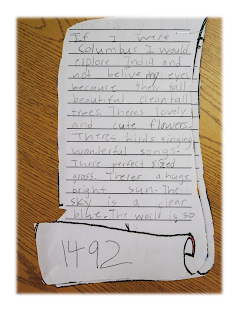 If I were
Columbus I would
explore India and
not belive my eyes
because ther all
beautiful clean tall
trees. Theres lovely
and cute flowers.
Theres birds singing
wonderful songs.
There perfect sized
grass. Theres a huge
bright sun. The
sky is a clear
blue. The world is so
1492